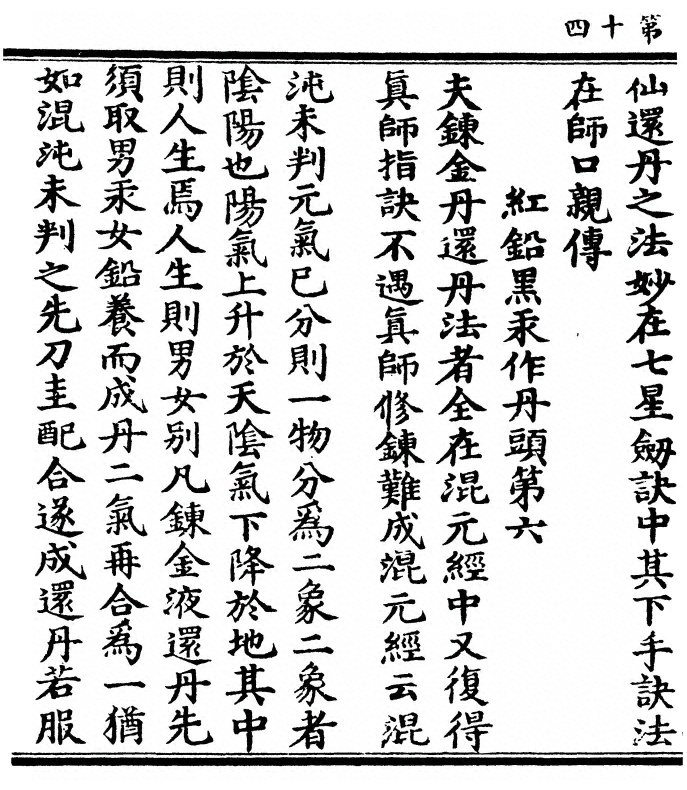 第十四
仙還丹之法妙在七星劔訣中其下手訣法
在師口親傳
紅鉛黑汞作丹頭第六
夫鍊金丹還丹法者全在混元經中又復得
眞師指訣不遇眞師修鍊難成混元經云混
沌未判元氣巳分則一物分爲二象二象者
陰陽也陽氣上升於天陰氣下降於地其中
則人生焉人生則男女别凡鍊金液還丹先
須取男汞女鉛養而成丹二氣再合爲一猶
如混沌未判之先刀圭配合遂成還丹若服